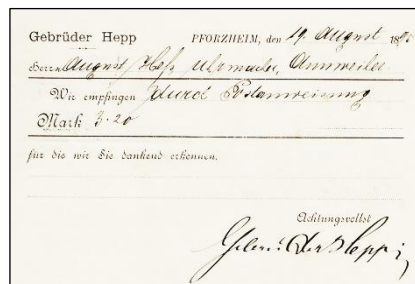 Gebrüder Hepp PFORZHEIM, den 19. August 18
Herrn August Heß Uhrmacher, Annweiler
Wir empfingen durch Postanweisung
Mark 3.20
für die wir Sie dankend erkennen.
Achtungsvollst
Gebrüder Hepp